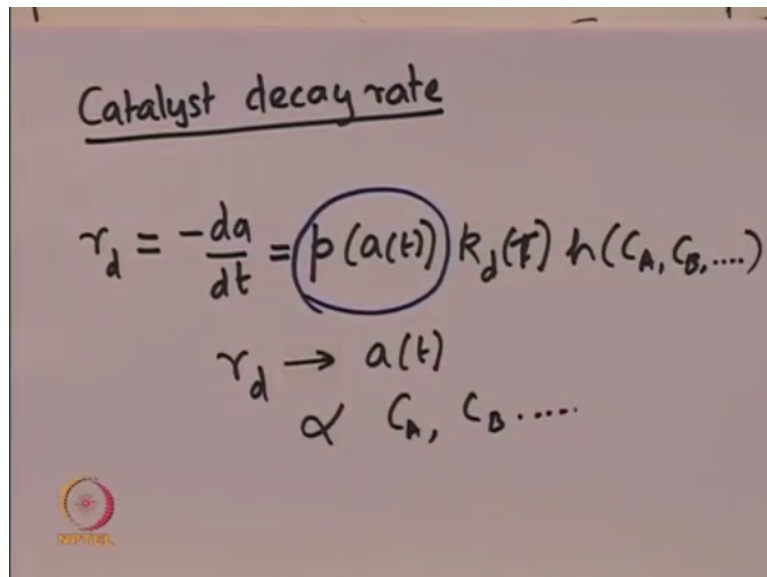 Catalyst decay rate
r_d = -da/dt = p(a(t)) k_d(T) h(C_A, C_B, ....)
r_d → a(t)
∝ C_A, C_B .....
NPTEL